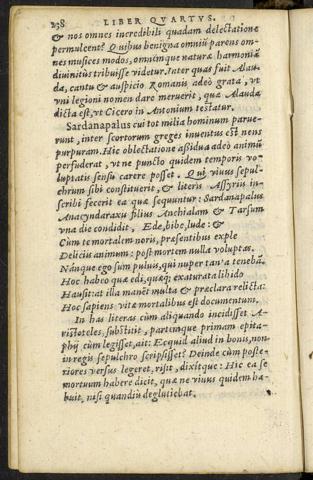 238 LIBER QVARTVS.
& nos omnes incredibili quadam delectatione
permulcent? Quibus benigna omniũ parens om-
nes musices modos, omnémque naturæ harmoniã
diuinitùs tribuisse videtur. Inter quas fuit Alau-
da, cantu & auspicio Romanis adeò grata, vt
vni legioni nomen dare meruerit, quæ Alauda
dicta est, vt Cicero in Antonium testatur.
Sardanapalus cui tot milia hominum parue-
runt, inter scortorum greges inuentus est nens
purpuram. Hic oblectatione assidua adeò animũ
perfuderat, vt ne puncto quidem temporis vo-
luptatis sensu carere posset. Qui viuus sepul-
chrum sibi constituerit, & literis Assyriis in-
scribi fecerit ea quæ sequuntur: Sardanapalus
Anacyndaraxu filius Anchialam & Tarsum
vna die condidit, Ede, bibe, lude: &
Cùm te mortalem noris, præsentibus exple
Deliciis animum: post mortem nulla voluptas.
Nánque ego sum puluis, qui nuper tanta tenebã.
Hoc habeo quæ edi, quæq; exaturata libido
Hausit: at illa manẽt multa & præclara relicta:
Hoc sapiens vitæ mortalibus est documentum.
In has literas cùm aliquando incidisset A-
ristoteles, substitit, partémque primam epita-
phij cùm legisset, ait: Ecquid aliud in bouis, non
in regis sepulchro scripsisset? Deinde cùm poste-
riores versus legeret, risit, dixítque: Hic ea se
mortuum habere dicit, quæ ne viuus quidem ha-
buit, nisi quandiu deglutiebat.